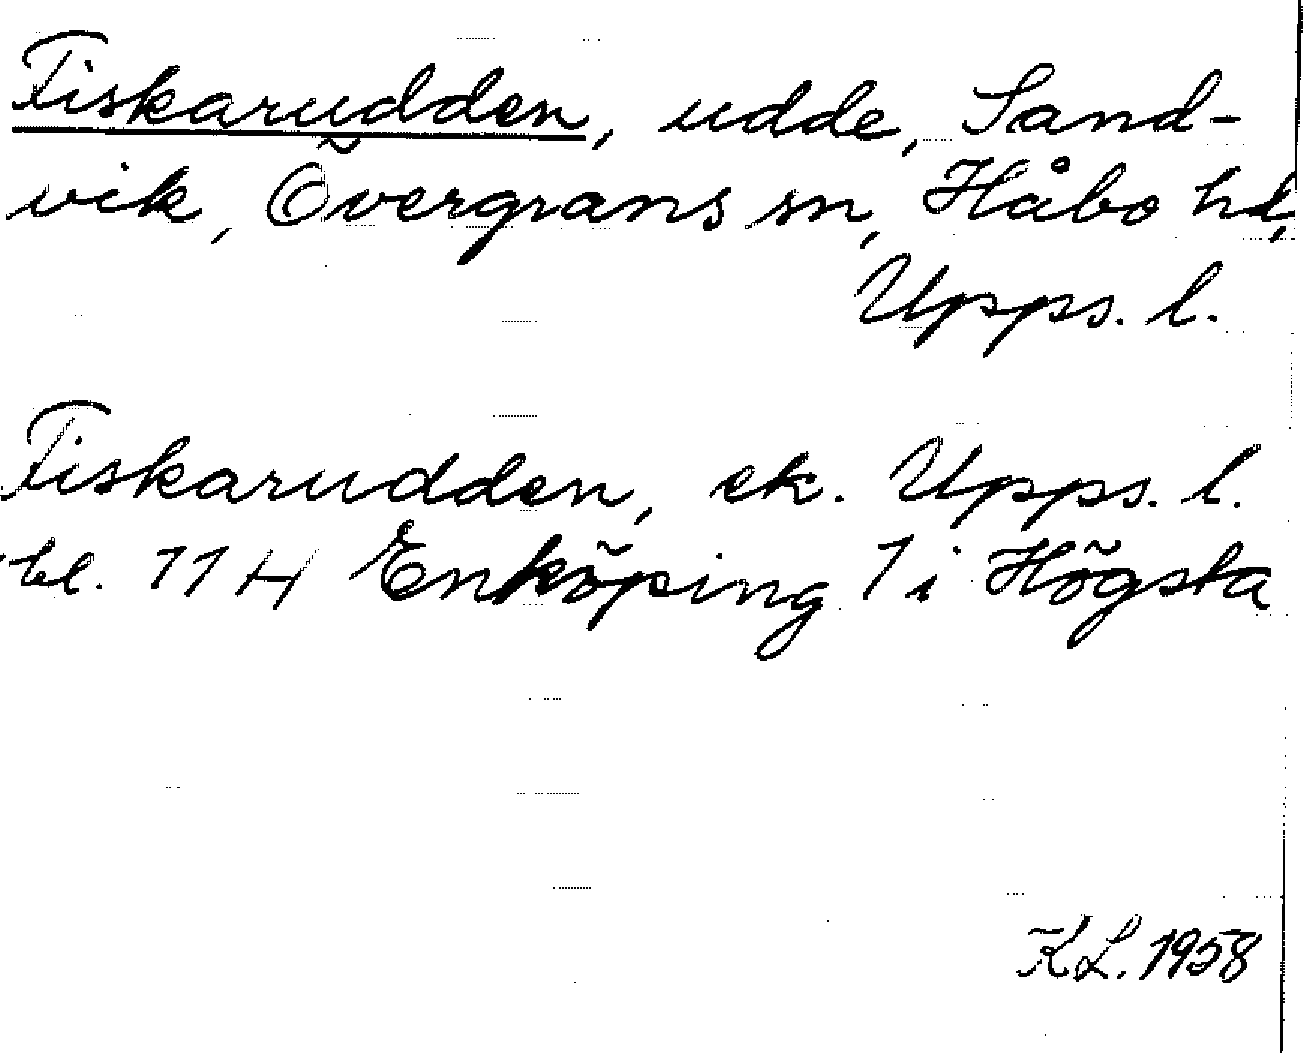 Fiskarudden, udde, Sand-
vik, Övergrans sn, Håbo hd,
Upps. l.
Fiskarudden, ek. Upps. l.
bl. 11 H Enköping 1 i Högsta
K.L. 1958